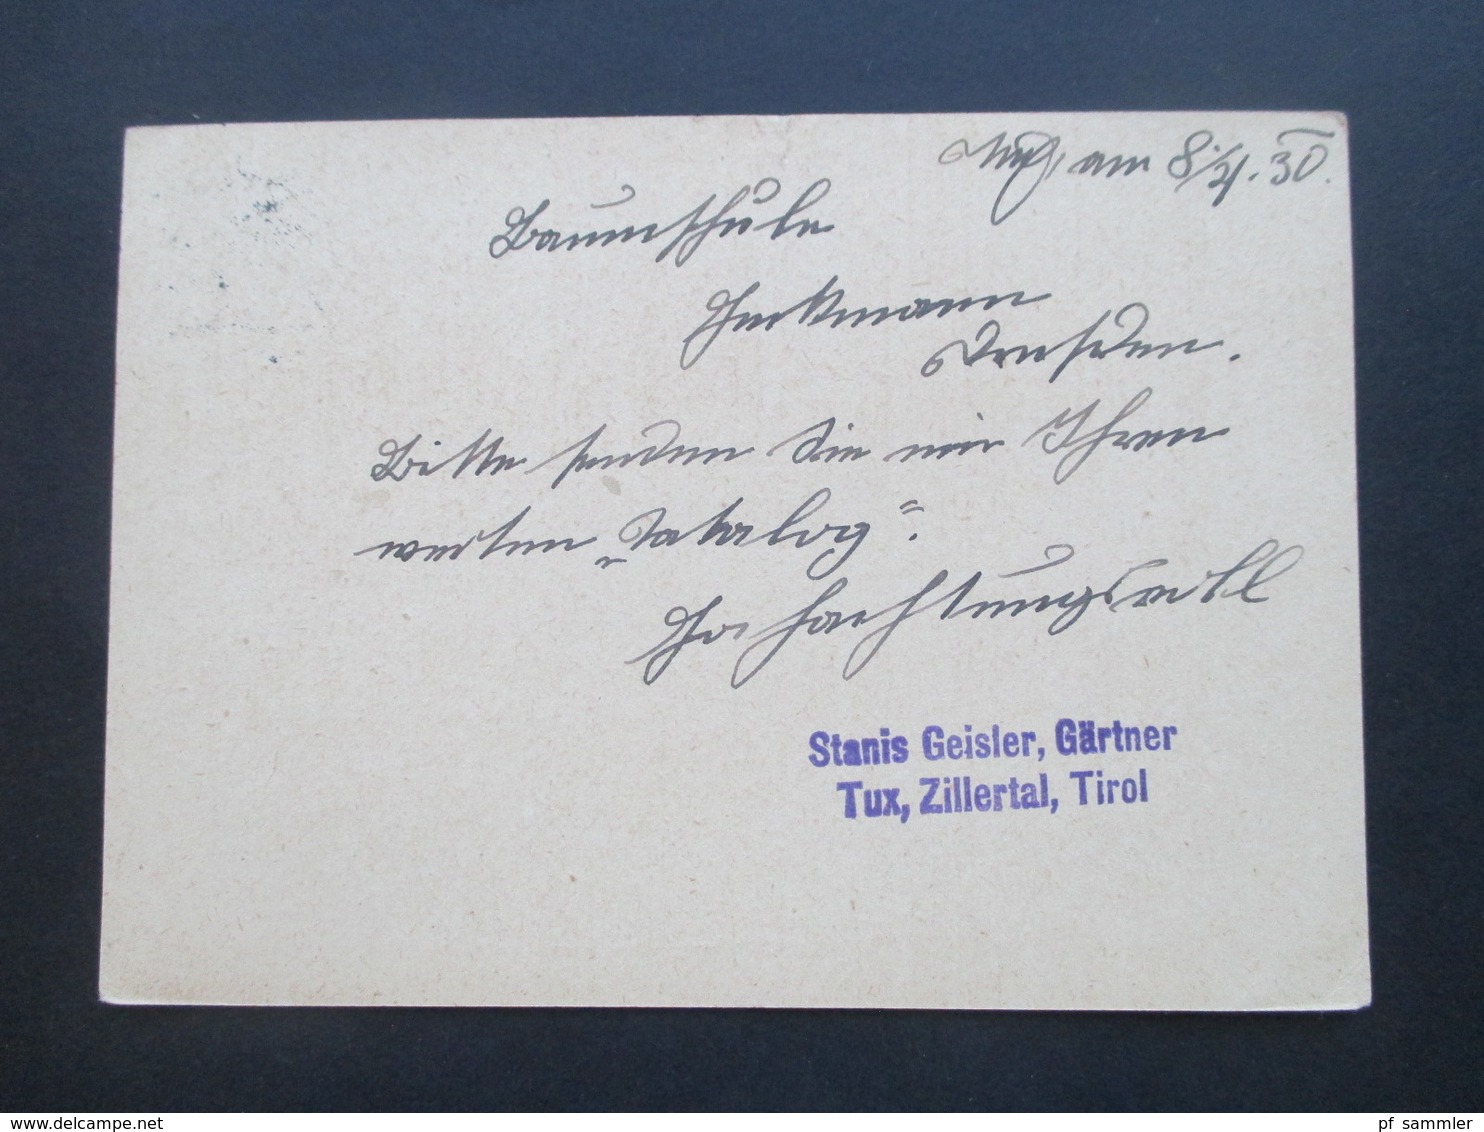 Tux, am 8./4. 30.
Baumschule
Heckmann
Dresden.
Bitte senden Sie mir Ihren
werten „Katalog“.
Hochachtungsvoll
Stanis Geisler, Gärtner
Tux, Zillertal, Tirol
www.delcampe.net
pf_sammler